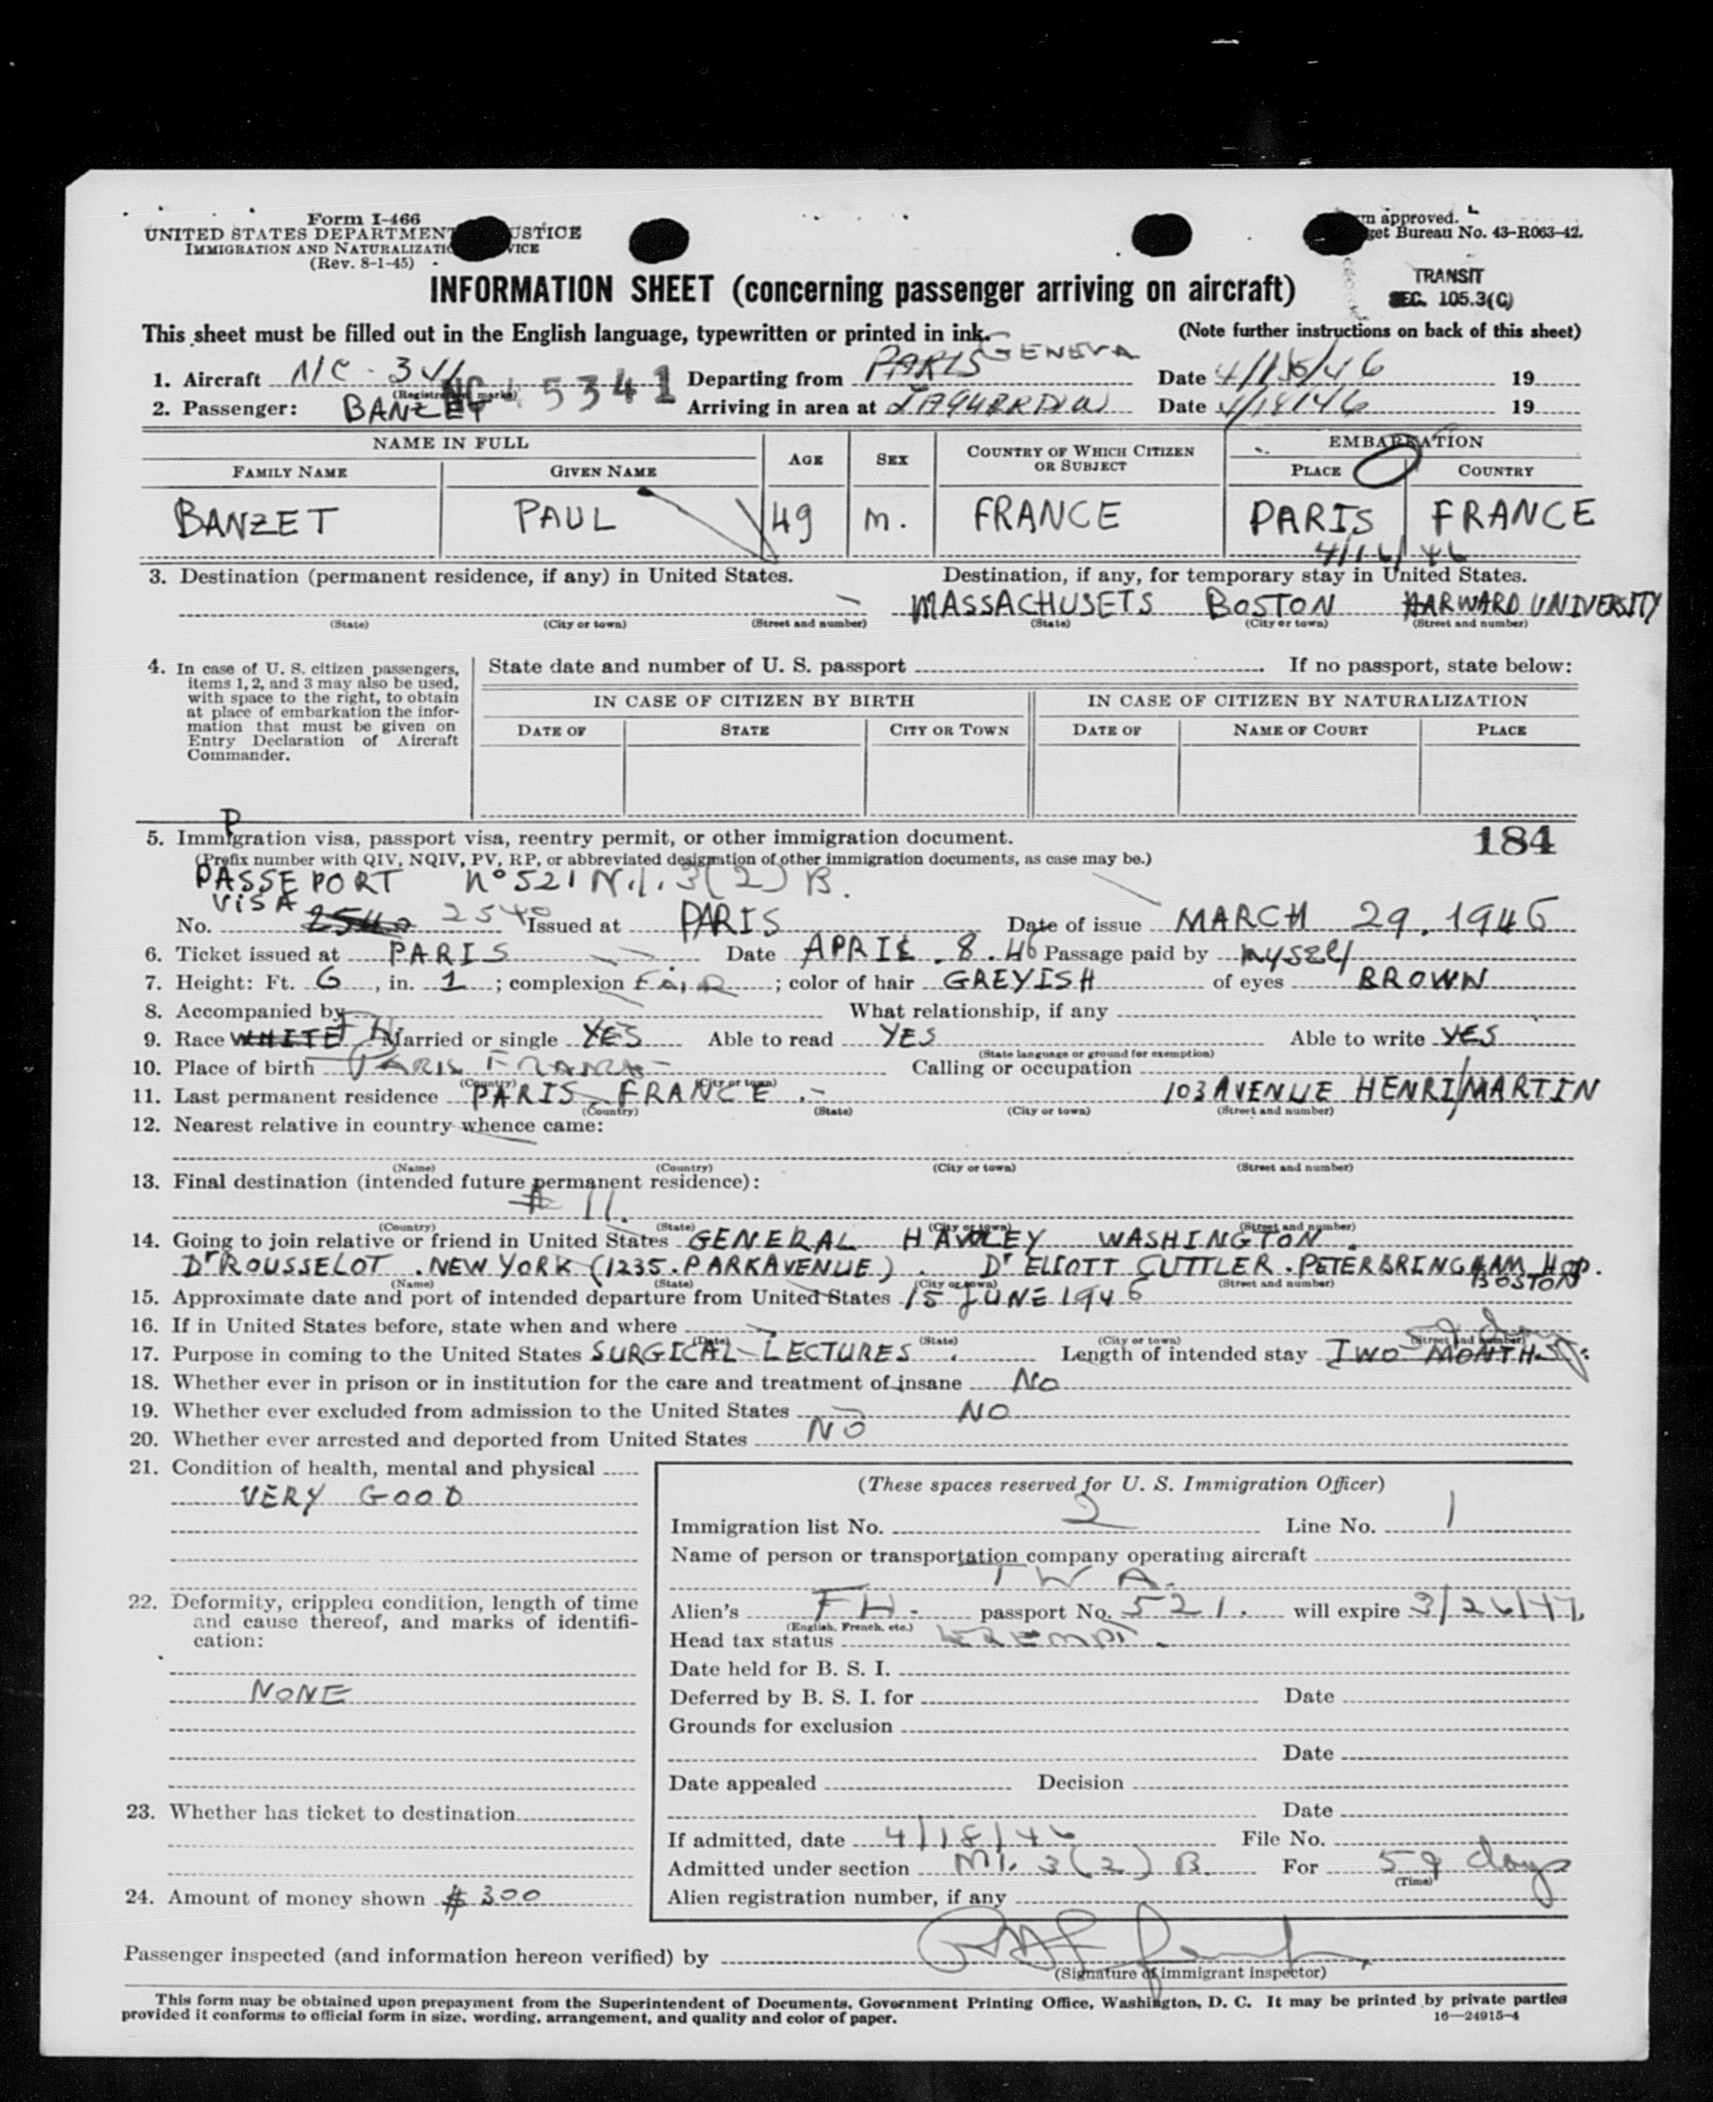 Form I-466
UNITED STATES DEPARTMENT JUSTICE
IMMIGRATION AND NATURALIZATION SERVICE
(Rev. 8-1-45)
approved.
Bureau No. 43-R063-42.
TRANSIT
SEC. 105.3(C)
INFORMATION SHEET (concerning passenger arriving on aircraft)
This sheet must be filled out in the English language, typewritten or printed in ink.
(Note further instructions on back of this sheet)
1. Aircraft NC-341 (Registration marks) Departing from PARIS GENEVA Date 4/16/46 19
2. Passenger: BANZET NC 45341 Arriving in area at LAGUARDIA Date 4/18/46 19
NAME IN FULL AGE SEX COUNTRY OF WHICH CITIZEN OR SUBJECT EMBARKATION
FAMILY NAME GIVEN NAME PLACE COUNTRY
BANZET PAUL 49 M. FRANCE PARIS FRANCE
4/16/46
3. Destination (permanent residence, if any) in United States. Destination, if any, for temporary stay in United States.
MASSACHUSETS BOSTON HARWARD UNIVERSITY
(State) (City or town) (Street and number) (State) (City or town) (Street and number)
4. In case of U. S. citizen passengers, items 1, 2, and 3 may also be used, with space to the right, to obtain at place of embarkation the information that must be given on Entry Declaration of Aircraft Commander.
State date and number of U. S. passport If no passport, state below:
IN CASE OF CITIZEN BY BIRTH IN CASE OF CITIZEN BY NATURALIZATION
DATE OF STATE CITY OR TOWN DATE OF NAME OF COURT PLACE
5. Immigration visa, passport visa, reentry permit, or other immigration document. 184
(Prefix number with QIV, NQIV, PV, RP, or abbreviated designation of other immigration documents, as case may be.)
PASSEPORT n° 521 N.I. 3(2) B.
VISA
No. 2540 2540 Issued at PARIS Date of issue MARCH 29. 1946
6. Ticket issued at PARIS Date APRIL. 8. 46 Passage paid by myself
7. Height: Ft. 6, in. 1; complexion FAIR; color of hair GREYISH of eyes BROWN
8. Accompanied by What relationship, if any
9. Race WHITE FH Married or single YES Able to read YES Able to write YES
(State language or ground for exemption)
10. Place of birth PARIS FRANCE Calling or occupation
(Country) (City or town)
11. Last permanent residence PARIS FRANCE .- 103 AVENUE HENRI MARTIN
(Country) (State) (City or town) (Street and number)
12. Nearest relative in country whence came:
(Name) (Country) (City or town) (Street and number)
13. Final destination (intended future permanent residence):
# 11.
(Country) (State) (City or town) (Street and number)
14. Going to join relative or friend in United States GENERAL HAWLEY WASHINGTON.
Dr ROUSSELOT. NEW YORK (1235. PARK AVENUE). Dr ELIOTT CUTTLER. PETER BRINGHAM Hop. BOSTON
(Name) (State) (City or town) (Street and number)
15. Approximate date and port of intended departure from United States 15 JUNE 1946
16. If in United States before, state when and where
(Date) (State) (City or town) (Street and number)
17. Purpose in coming to the United States SURGICAL LECTURES. Length of intended stay TWO MONTHS 59 days
18. Whether ever in prison or in institution for the care and treatment of insane NO
19. Whether ever excluded from admission to the United States NO
20. Whether ever arrested and deported from United States NO
21. Condition of health, mental and physical
VERY GOOD
22. Deformity, crippled condition, length of time and cause thereof, and marks of identification:
NONE
23. Whether has ticket to destination
24. Amount of money shown $ 300
(These spaces reserved for U. S. Immigration Officer)
Immigration list No. 2 Line No. 1
Name of person or transportation company operating aircraft
TWA.
Alien's FH. passport No. 521. will expire 3/26/47
(English, French, etc.)
Head tax status EXEMPT.
Date held for B. S. I.
Deferred by B. S. I. for Date
Grounds for exclusion
Date
Date appealed Decision
Date
If admitted, date 4/18/46 File No.
Admitted under section NI. 3(2) B. For 59 days
(Time)
Alien registration number, if any
Passenger inspected (and information hereon verified) by
(Signature of immigrant inspector)
This form may be obtained upon prepayment from the Superintendent of Documents, Government Printing Office, Washington, D. C. It may be printed by private parties
provided it conforms to official form in size, wording, arrangement, and quality and color of paper. 16—24915-4